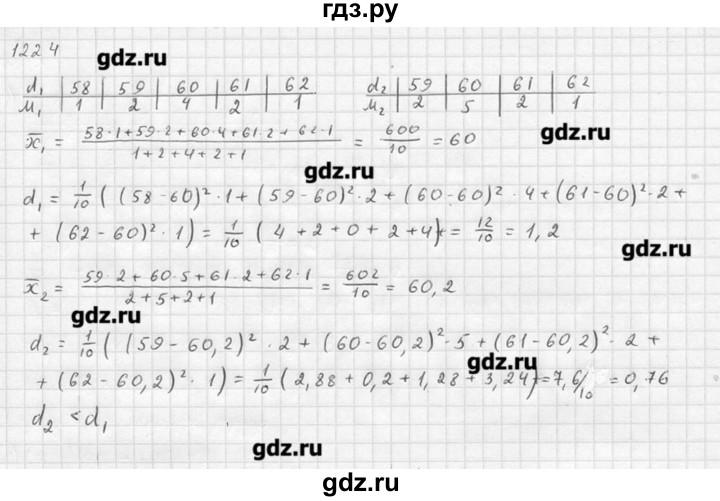 гдз.ру
1224
gdz.ru
d₁ | 58 | 59 | 60 | 61 | 62
M₁ | 1 | 2 | 4 | 2 | 1
d₂ | 59 | 60 | 61 | 62
M₂ | 2 | 5 | 2 | 1
x̄₁ = (58·1+59·2+60·4+61·2+62·1)/(1+2+4+2+1) = 600/10 = 60
gdz.ru
gdz.ru
d₁ = 1/10 ( (58-60)²·1+(59-60)²·2+(60-60)²·4+(61-60)²·2+
+ (62-60)²·1) = 1/10 ( 4+2+0+2+4) = 12/10 = 1,2
gdz.ru
x̄₂ = (59·2+60·5+61·2+62·1)/(2+5+2+1) = 602/10 = 60,2
gdz.ru
d₂ = 1/10 ( (59-60,2)²·2+(60-60,2)²·5+(61-60,2)²·2+
gdz.ru
+ (62-60,2)²·1) = 1/10 (2,88+0,2+1,28+3,24) = 7,6/10 = 0,76
d₂ < d₁
gdz.ru